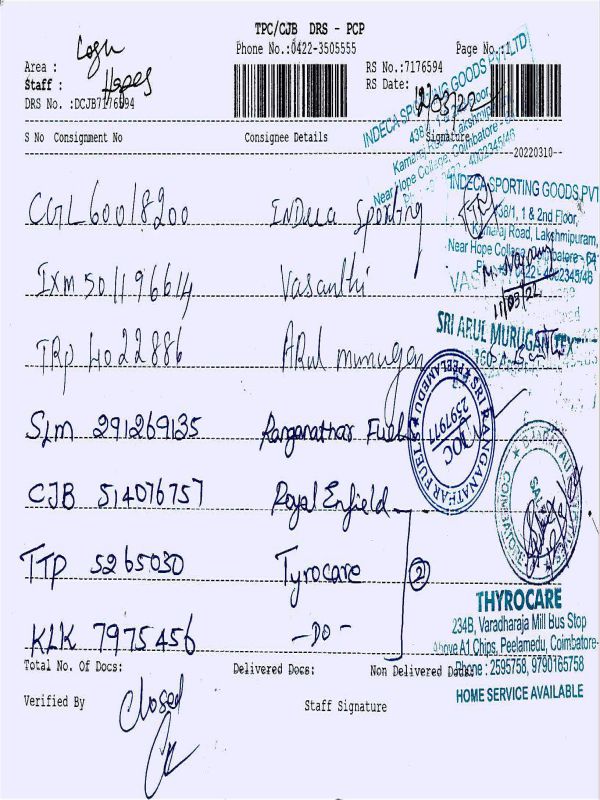 TPC/CJB DRS - PCP
Phone No.:0422-3505555
Page No.:1
Area :
Staff :
DRS No. :DCJB7176594
RS No.:7176594
RS Date:
S No Consignment No Consignee Details Signature
--20220310--
INDECA SPORTING GOODS PVT LTD
Near Hope College, Coimbatore
CGL60018200 INDeca Sporting
INDECA SPORTING GOODS PVT
438/1, 1 & 2nd Floor,
Kamaraj Road, Lakshmipuram,
Near Hope College
IXM 501196614 Vasanthi
11/03/22
SRI ARUL MURUGAN TEX
TRP 4022886 ARul murugan
SRI RANGANATHAR FUELS
PEELAMEDU
2597971
SLM 291269135 Ranganathar Fuels
CJB 514076757 Royal Enfield
TTP 5265030 Tyrocare
2
KLK 7975456 -DO-
THYROCARE
234B, Varadharaja Mill Bus Stop
Above A1.Chips, Peelamedu, Coimbatore-
Phone : 2595758, 9790165758
HOME SERVICE AVAILABLE
Total No. Of Docs: Delivered Docs: Non Delivered Docs:
Verified By closed Staff Signature